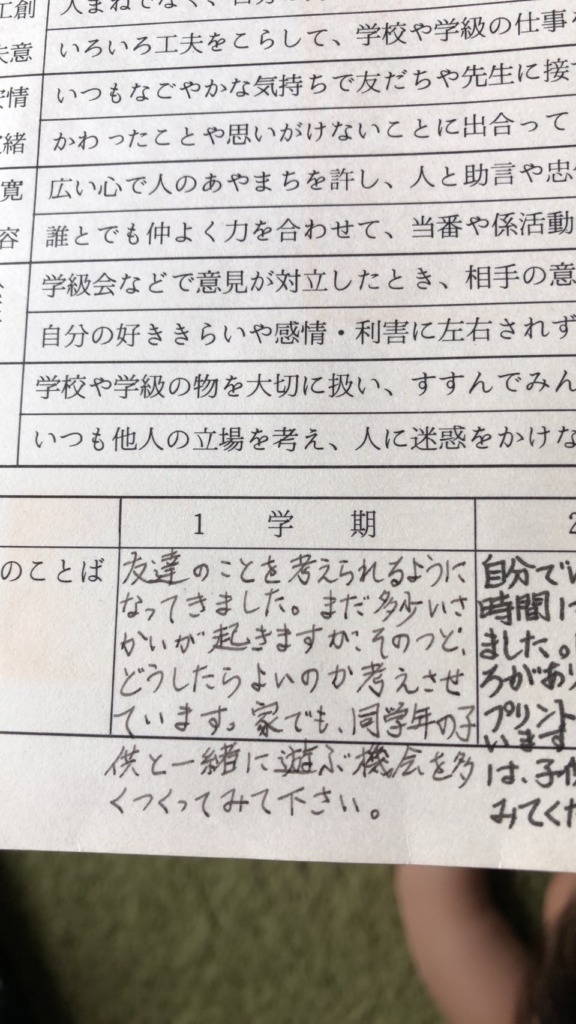 工創
人まねでなく、自分の
夫意
いろいろ工夫をこらして、学校や学級の仕事
情
いつもなごやかな気持ちで友だちや先生に接
緒
かわったことや思いがけないことに出合って
寛
広い心で人のあやまちを許し、人と助言や忠
容
誰とでも仲よく力を合わせて、当番や係活動
学級会などで意見が対立したとき、相手の意
自分の好ききらいや感情・利害に左右されず
学校や学級の物を大切に扱い、すすんでみん
いつも他人の立場を考え、人に迷惑をかけな
1 学 期
2
のことば
友達のことを考えられるように
なってきました。まだ多少いさ
かいが起きますが、そのつど、
どうしたらよいのか考えさせ
ています。家でも、同学年の子
供と一緒に遊ぶ機会を多
くつくってみて下さい。
自分でい
時間に
ました。
ろがあり
プリント
います
は、子供
みてくだ